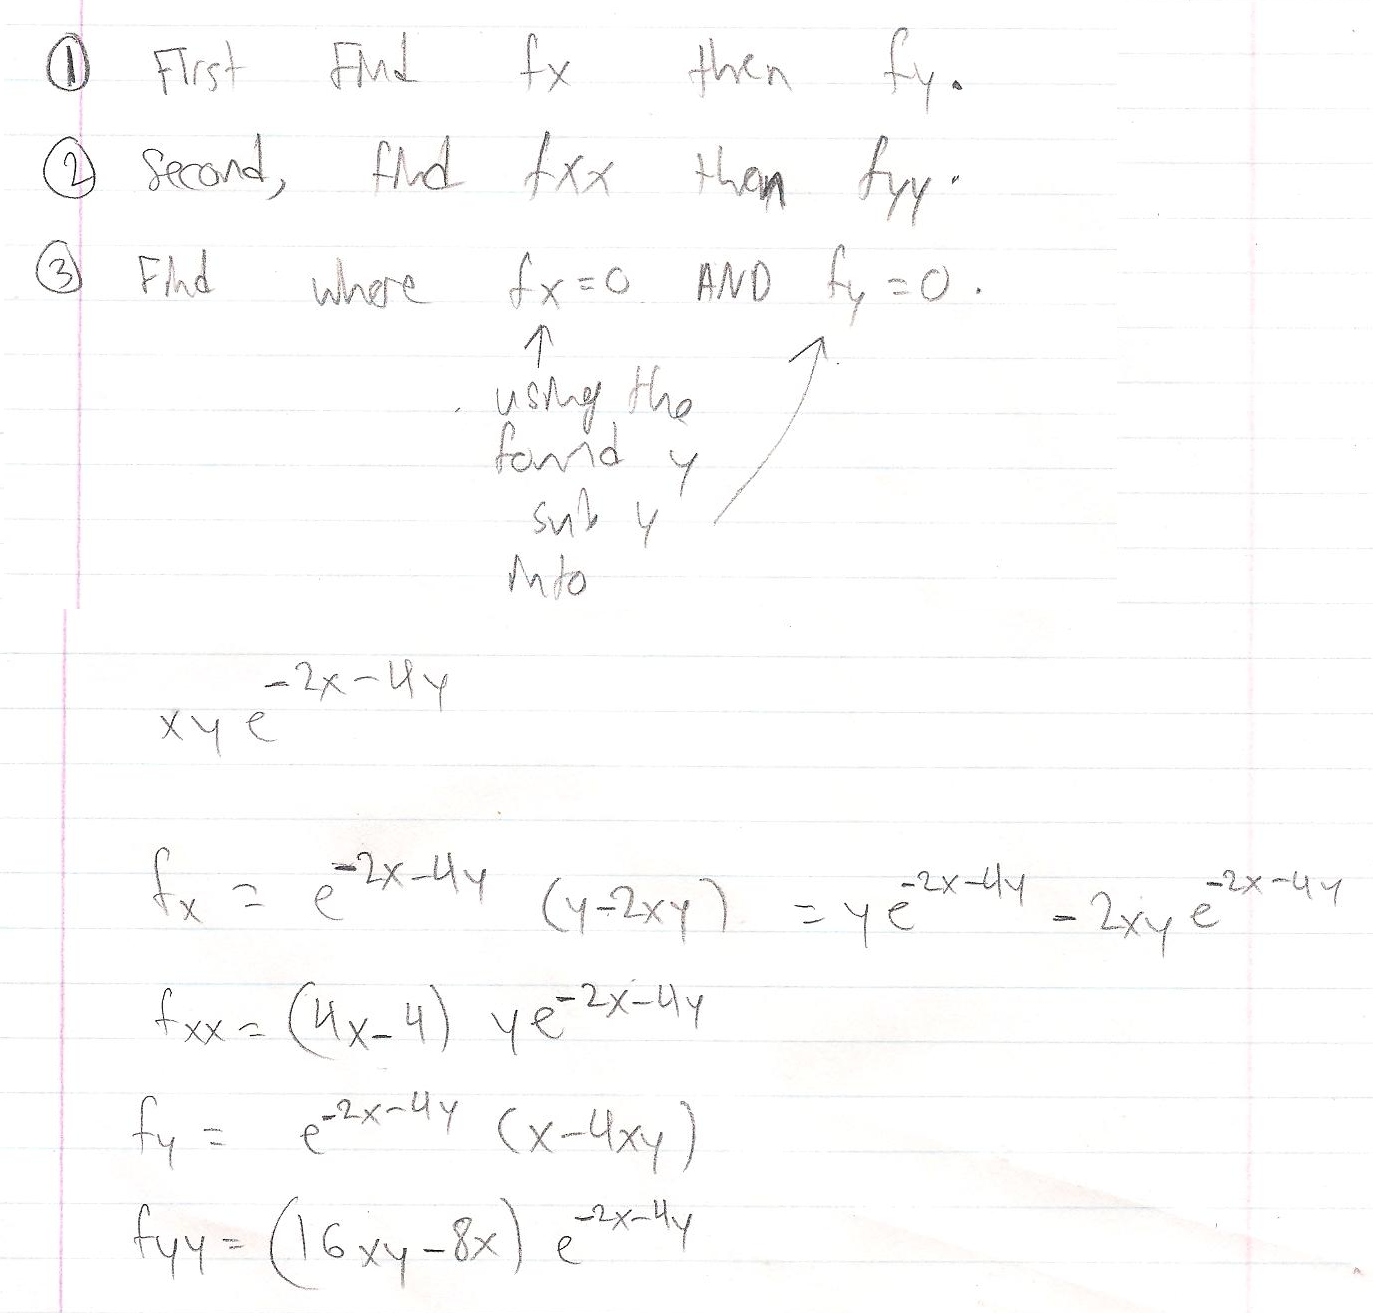 ① First Find fx then fy.
② Second, find fxx then fyy.
③ Find where fx=0 AND fy=0.
↑
using the
found y
sub y
into
xye^{-2x-4y}
fx = e^{-2x-4y} (y-2xy) = ye^{-2x-4y} - 2xye^{-2x-4y}
fxx = (4x-4) ye^{-2x-4y}
fy = e^{-2x-4y} (x-4xy)
fyy = (16xy-8x) e^{-2x-4y}